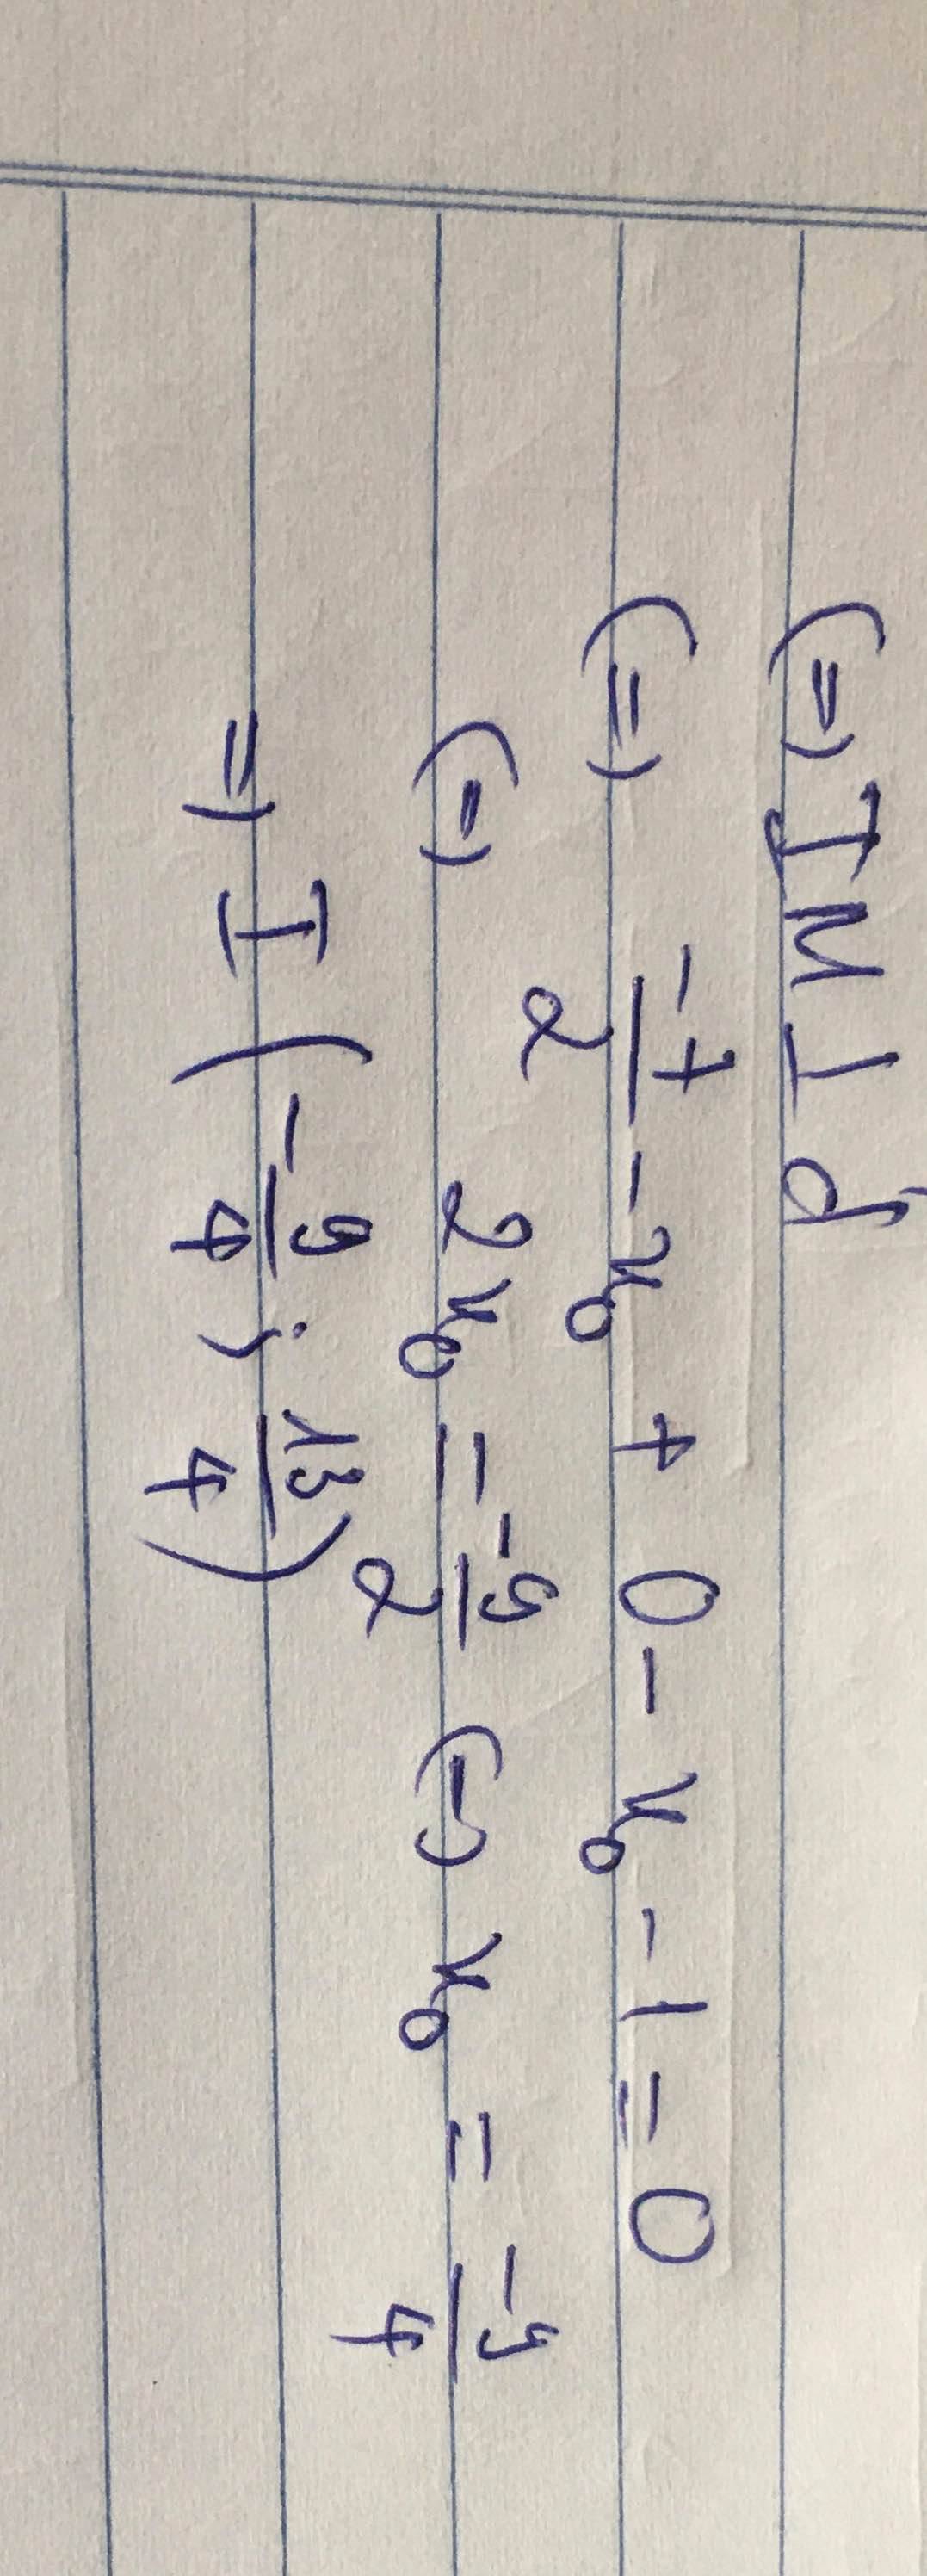 (=) IM ⊥ d
(=) -7/2 - x₀ + 0 - x₀ - 1 = 0
(=) 2x₀ = -9/2 (=) x₀ = -9/4
=) I (-9/4 ; 13/4)